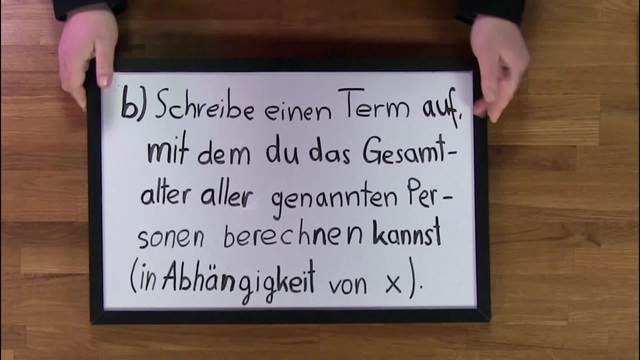 b) Schreibe einen Term auf,
mit dem du das Gesamt-
alter aller genannten Per-
sonen berechnen kannst
(in Abhängigkeit von x).